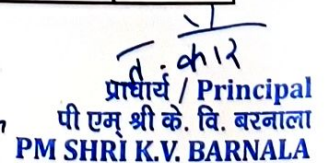 प्राचार्य / Principal
पी एम् श्री के. वि. बरनाला
PM SHRI K.V. BARNALA